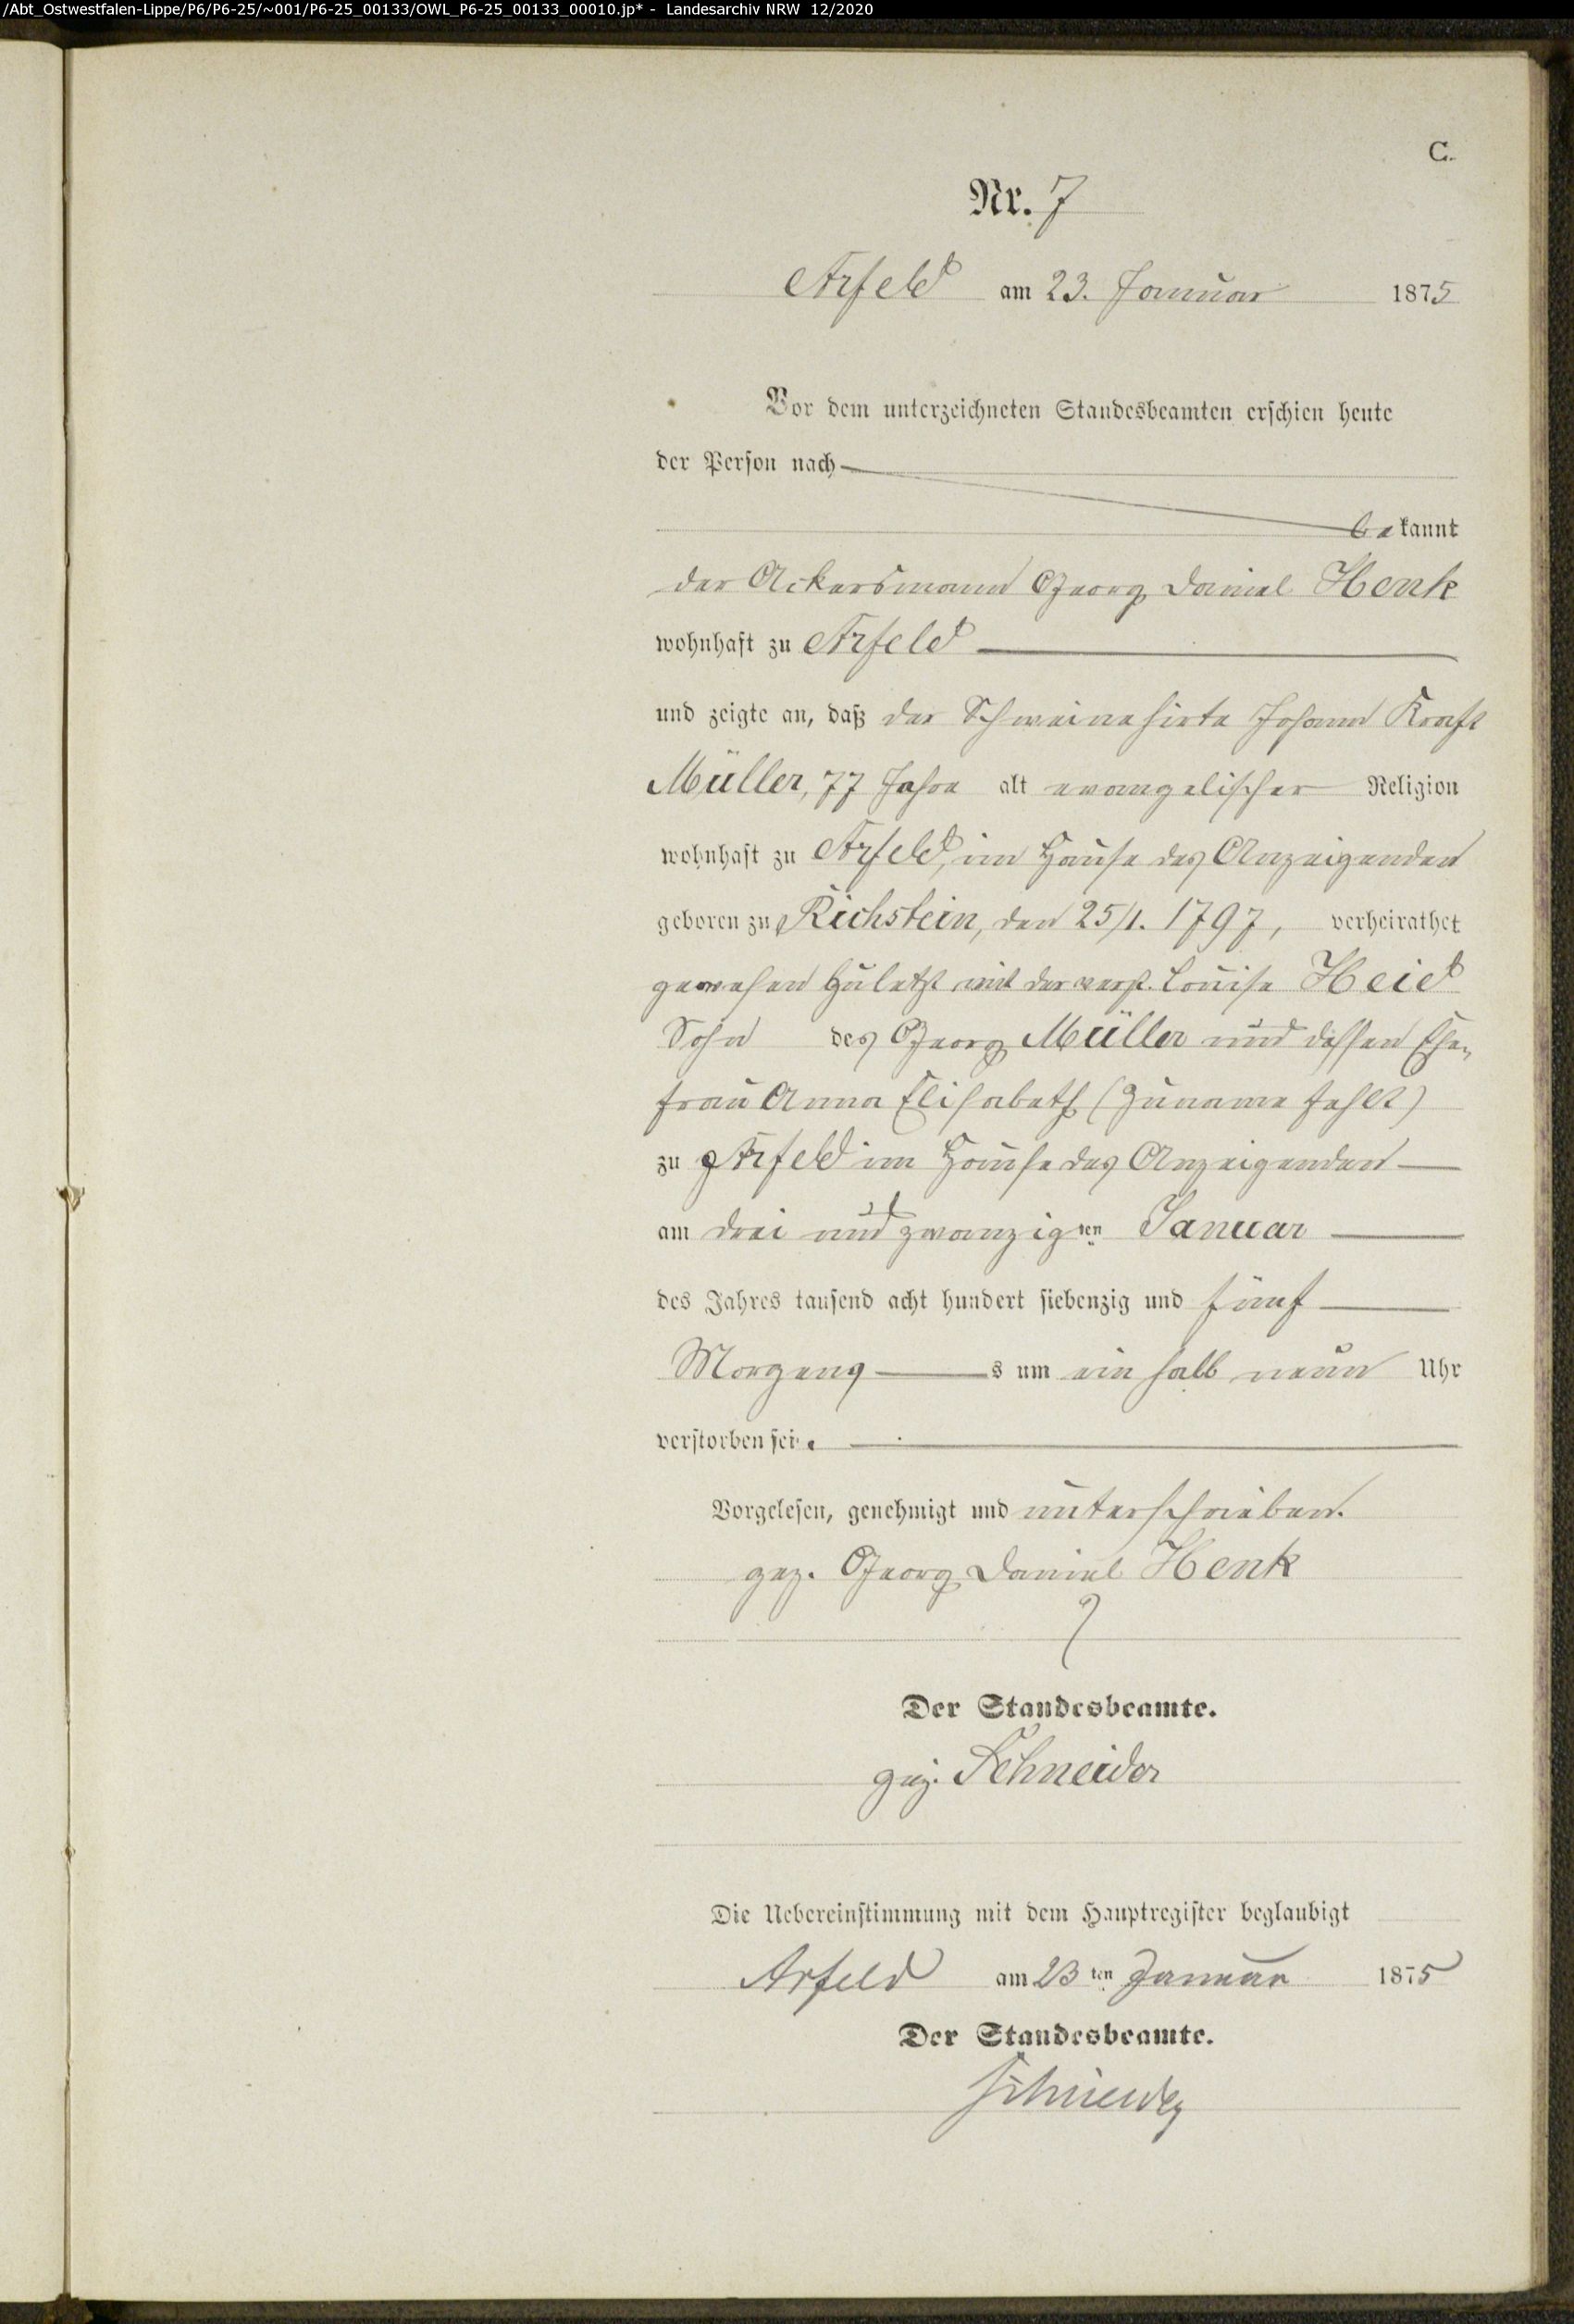 /Abt_Ostwestfalen-Lippe/P6/P6-25/~001/P6-25_00133/OWL_P6-25_00133_00010.jp* - Landesarchiv NRW 12/2020
C.
Nr. 7
Arfeld am 23. Januar 1875
Vor dem unterzeichneten Standesbeamten erschien heute
der Person nach
bekannt
der Ackersmann Georg Daniel Henk
wohnhaft zu Arfeld
und zeigte an, daß der Schweinehirte Johann Kraft
Müller, 77 Jahre alt evangelischer Religion
wohnhaft zu Arfeld, im Hause des Anzeigenden
geboren zu Richstein, den 25/1. 1797, verheirathet
gewesen zuletzt mit der verst. Louise Heid
Sohn des Georg Müller und dessen Ehe-
frau Anna Elisabeth (Zuname fehlt)
zu Arfeld im Hause des Anzeigenden
am drei und zwanzigten Januar
des Jahres tausend acht hundert siebenzig und fünf
Morgens s um ein halb neun Uhr
verstorben sei.
Vorgelesen, genehmigt und unterschrieben.
gez. Georg Daniel Henk
Der Standesbeamte.
gez. Schneider
Die Uebereinstimmung mit dem Hauptregister beglaubigt
Arfeld am 23ten Januar 1875
Der Standesbeamte.
Schneider